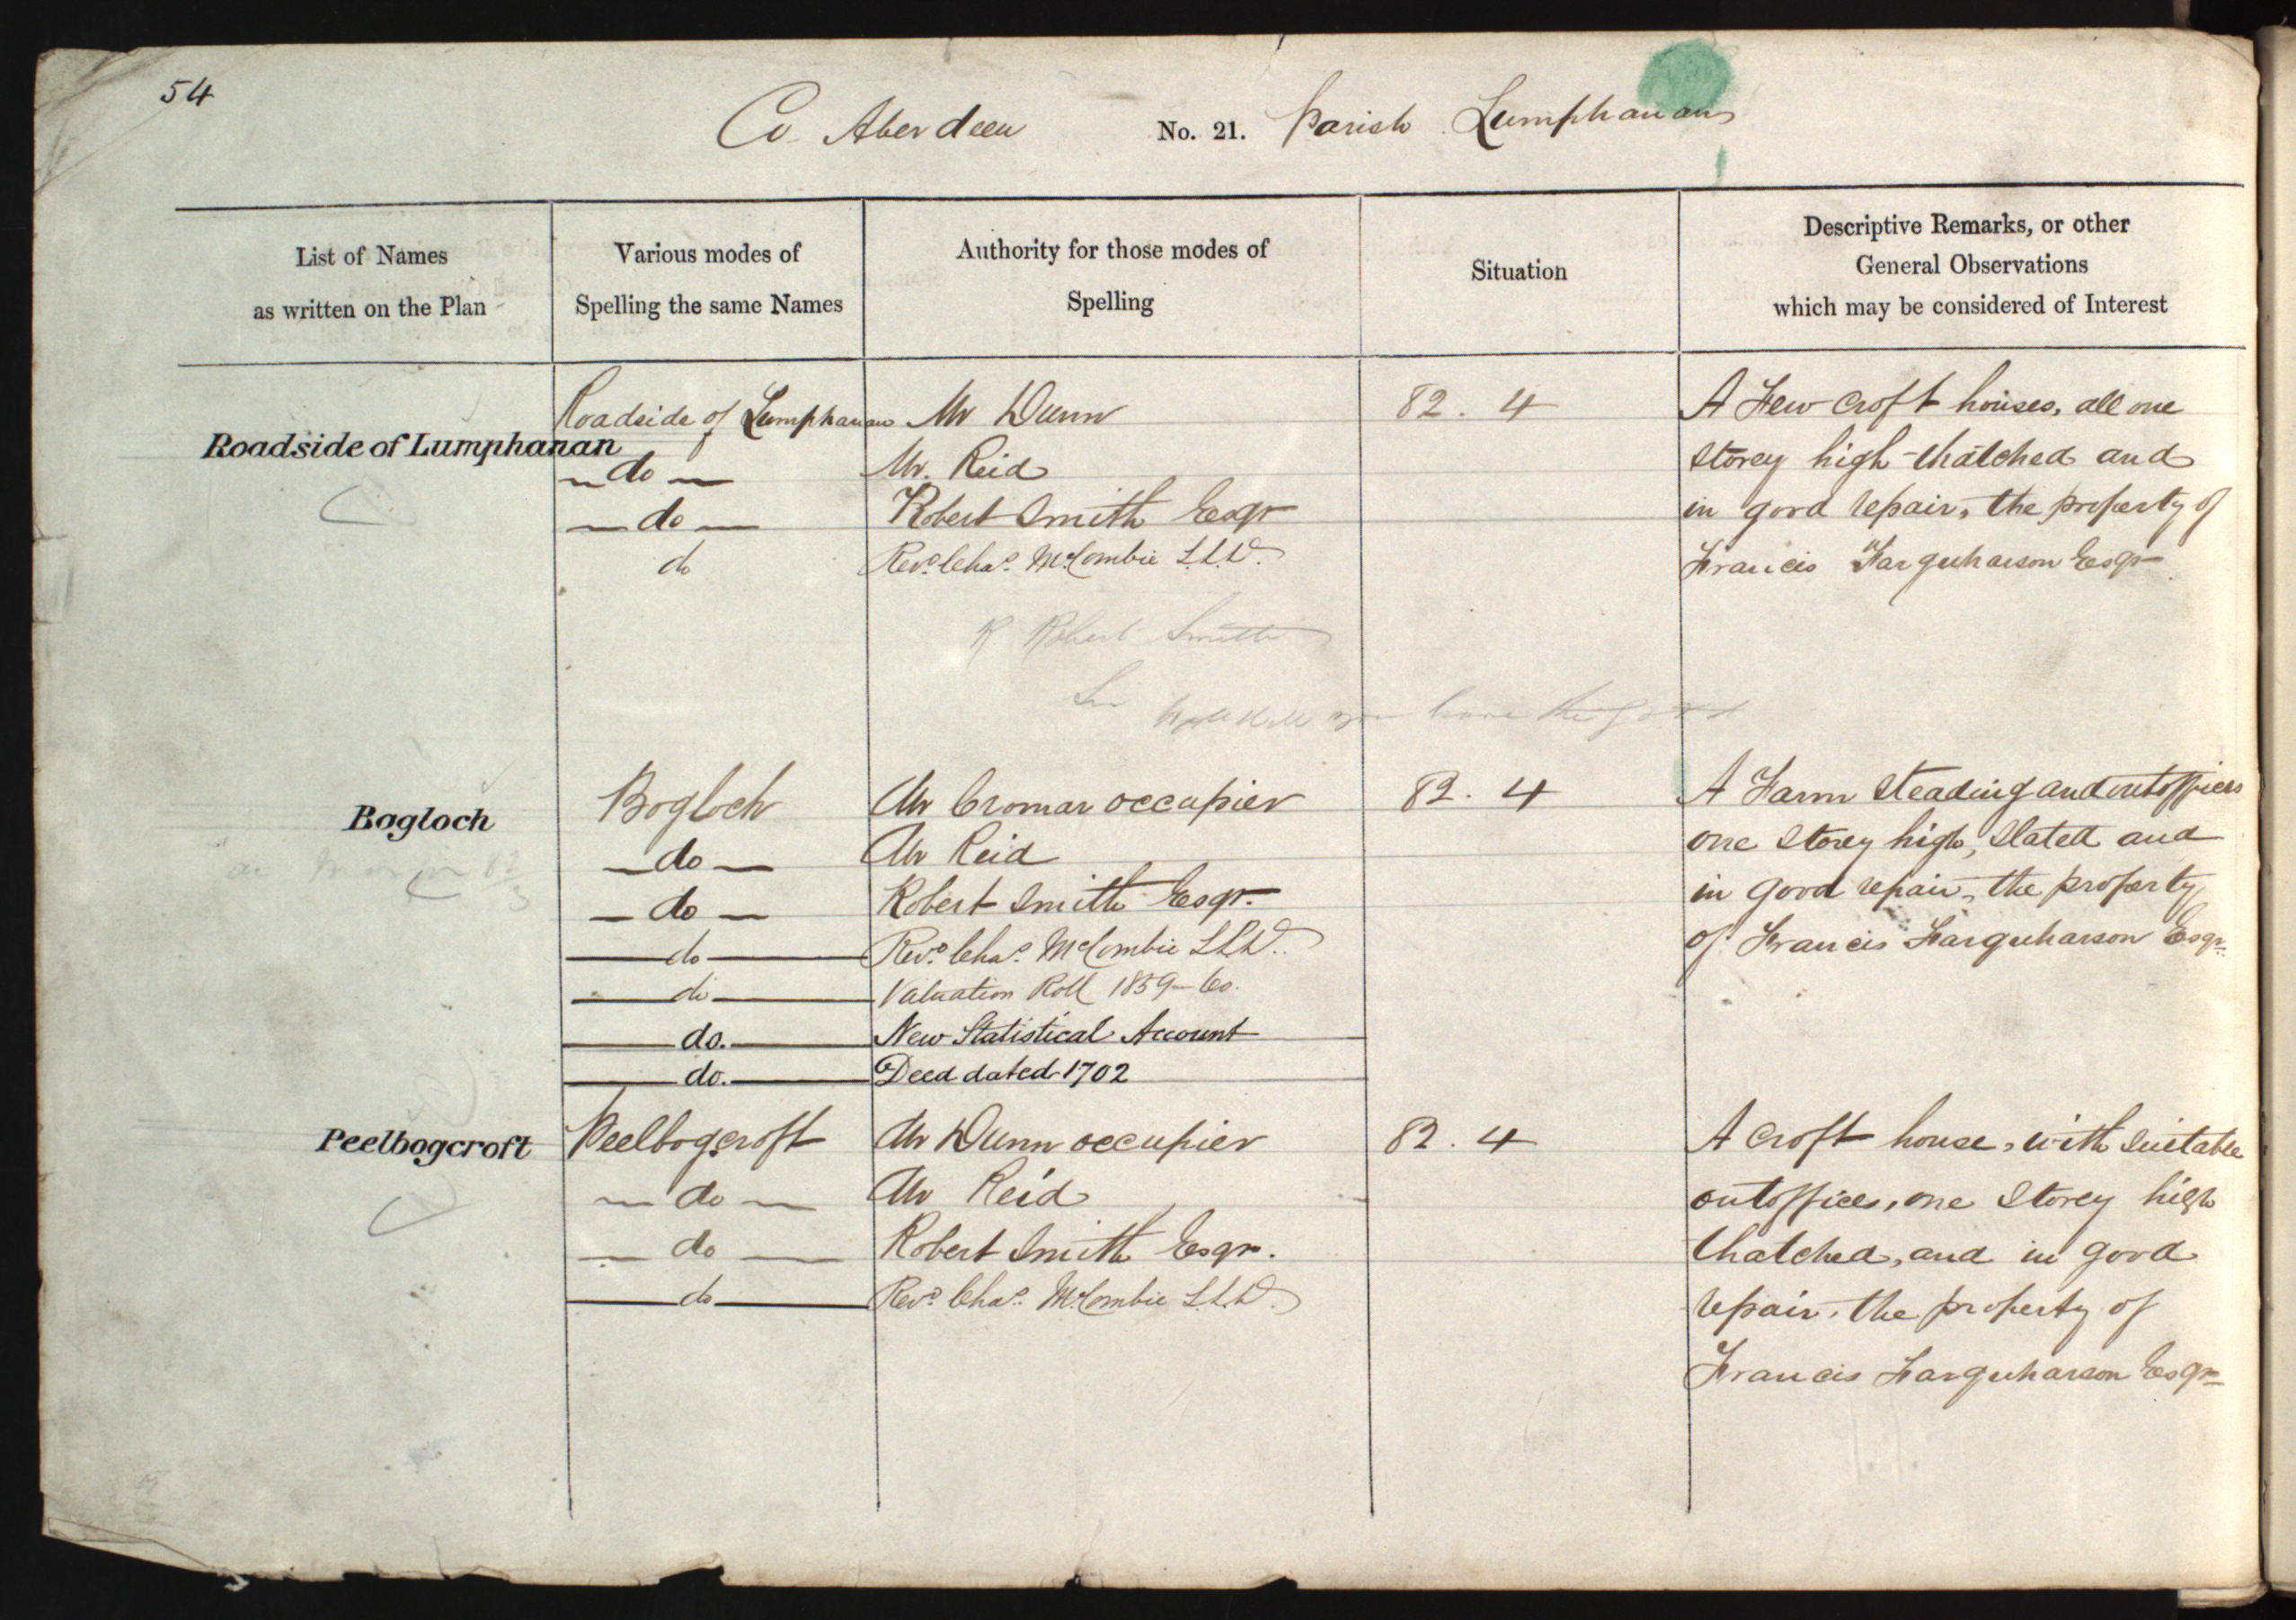 54
Co. Aberdeen No. 21. Parish Lumphanan
List of Names
as written on the Plan
Various modes of
Spelling the same Names
Authority for those modes of
Spelling
Situation
Descriptive Remarks, or other
General Observations
which may be considered of Interest
Roadside of Lumphanan
Roadside of Lumphanan
do
do
do
Mr Dunn
Mr. Reid
Robert Smith Esqr
Revd. Chas. McCombie L.L.D.
82 . 4
A Few Croft houses, all one
storey high thatched and
in good repair, the property of
Francis Farquharson Esqr
R Robert Smith
Sir
you have the
Bogloch
82
3
Bogloch
do
do
do
do
do.
do.
Mr Cromar occupier
Mr Reid
Robert Smith Esqr.
Revd. Chas. McCombie L.L.D.
Valuation Roll 1859-60.
New Statistical Account
Deed dated 1702
82 . 4
A Farm Steading and outoffices
one Storey high, Slated and
in good repair, the property
of Francis Farquharson Esqr.
Peelbogcroft
Peelbogcroft
do
do
do
Mr Dunn occupier
Mr Reid
Robert Smith Esqr.
Revd. Chas. McCombie L.L.D.
82 . 4
A Croft house, with suitable
outoffices, one Storey high
thatched, and in good
repair, the property of
Francis Farquharson Esqr